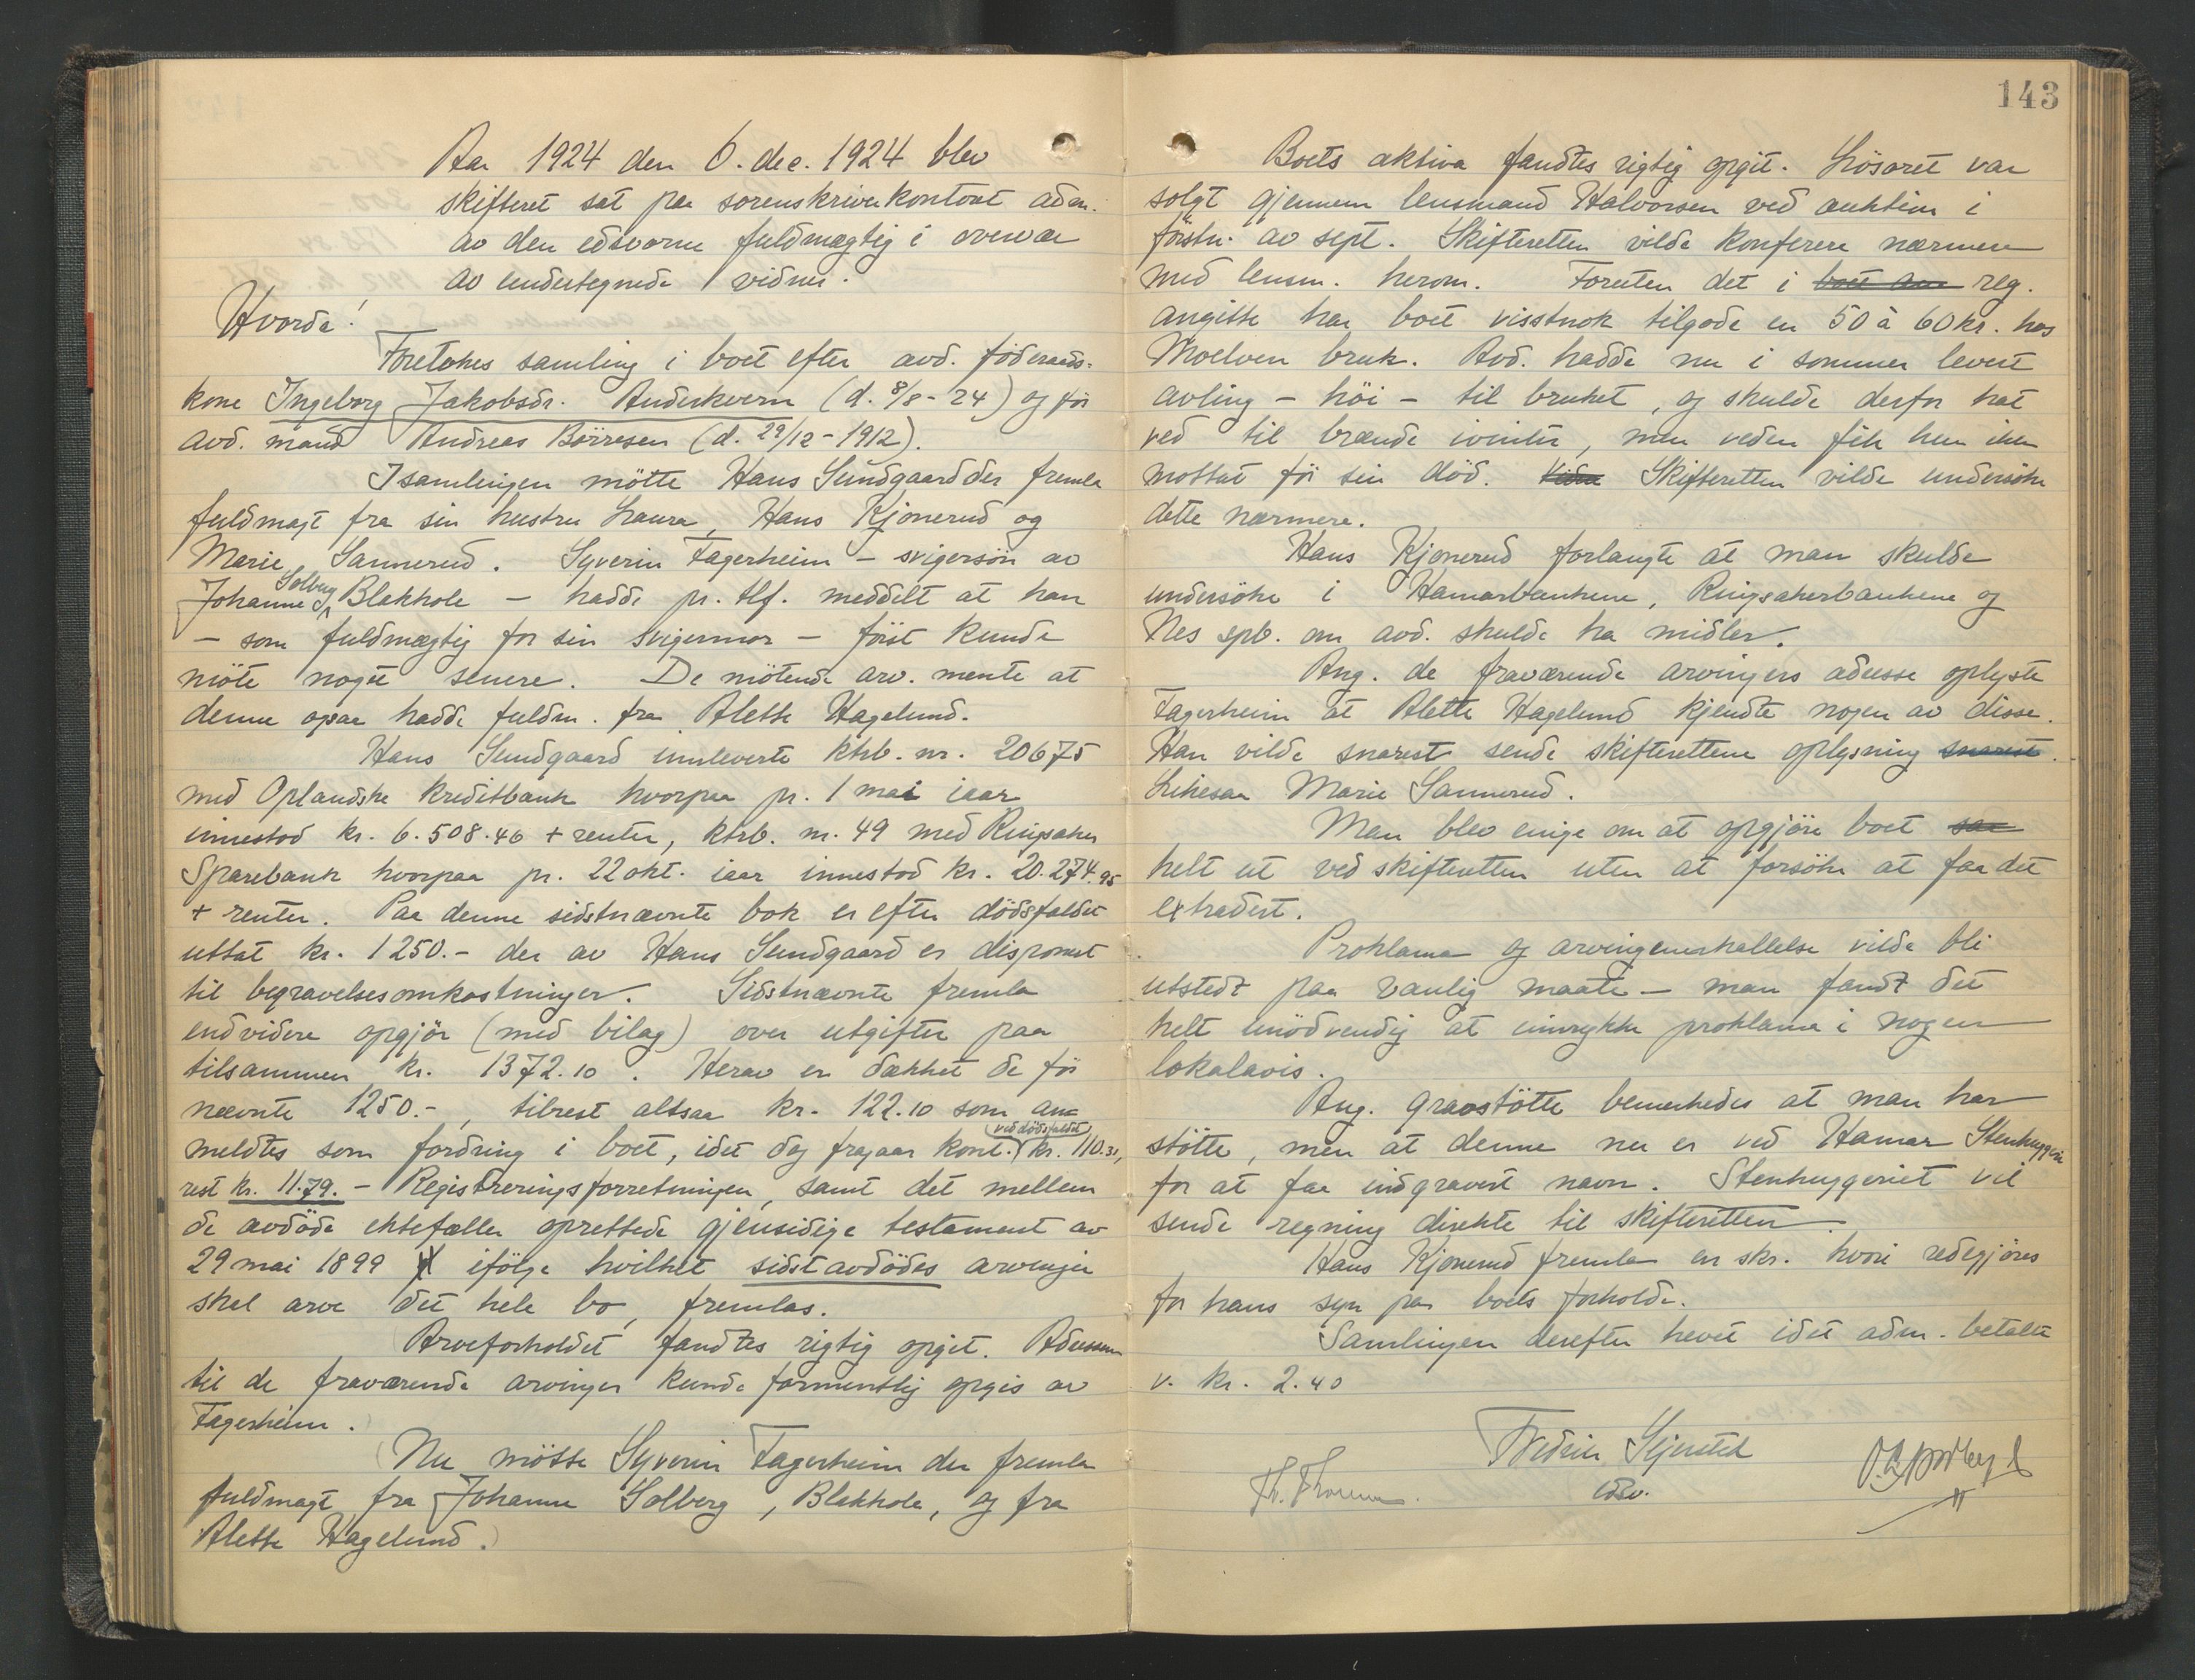 Aar 1924 den 6. dec. 1924 blev
skifteret sat paa sorenskriverkontoret adm.
av den edsvorne fuldmægtig i overvær
av undertegnede vidner.
Hvorda!
Foretokes samling i boet efter avd. föderaads-
kone Ingeborg Jakobsdr. Anderkvern (d. 8/8-24) og för
avd. mand Andreas Börresen (d. 29/12-1912).
I samlingen mötte Hans Sundgaard der fremla
fuldmagt fra sin hustru Laura, Hans Kjonerud og
Marie Sannerud. Syverin Fagerheim – svigersön av
Johanne Solberg Blakhole – hadde pr. tlf. meddelt at han
– som fuldmægtig for sin svigermor – först kunde
möte noget senere. De mötende arv. mente at
denne ogsaa hadde fuldm. fra Alette Hagelund.
Hans Sundgaard innleverte ktrb. nr. 20675
med Oplandske Kreditbank hvorpaa pr. 1 mai iaar
innestod kr. 6.508.46 + renter, ktrb. nr. 49 med Ringsaker
Sparebank hvorpaa pr. 22 okt. iaar innestod kr. 20.274.95
+ renter. Paa denne sidstnævnte bok er efter dödsfaldet
uttat kr. 1250.- der av Hans Sundgaard er disponert
til begravelsesomkostninger. Sidstnævnte fremla
endvidere opgjör (med bilag) over utgifter paa
tilsammen kr. 1372.10. Herav er dækket de för
nævnte 1250.-, tilrest altsaa kr. 122.10 som an-
meldtes som fordring i boet, idet dog fragaar kont. (ved dödsfaldet) kr. 110.31,
rest kr. 11.79. – Registreringsforretningen, samt det mellem
de avdöde ektefæller oprettede gjensidige testament av
29 mai 1899 ifölge hvilket sidstavdödes arvinger
skal arve det hele bo, fremlas.
Arveforholdet fandtes rigtig opgit. Adressen
til de fraværende arvinger kunde formentlig opgis av
Fagerheim.
(Nu mötte Syverin Fagerheim der fremla
fuldmagt fra Johanne Solberg, Blakhole, og fra
Alette Hagelund.)
143
Boets aktiva fandtes rigtig opgit. Lösöret var
solgt gjennem lensmand Halvorsen ved auktion i
förstn. av sept. Skifteretten vilde konferere nærmere
med lensm. herom. Foruten det i boet reg.
angitte har boet visstnok tilgode en 50 à 60 kr. hos
Moelven bruk. Avd. hadde nu i sommer levert
avling – höi – til bruket, og skulde derfor hat
ved til brænde ivinter, men veden fik hun ikke
mottat för sin död. Skifteretten vilde undersöke
dette nærmere.
Hans Kjonerud forlangte at man skulde
undersöke i Hamarbankene, Ringsakerbankene og
Nes spb. om avd. skulde ha midler.
Ang. de fraværende arvingers adresse oplyste
Fagerheim at Alette Hagelund kjendte nogen av disse.
Han vilde snarest sende skifteretten oplysning snarest.
Likesaa Marie Sannerud.
Man blev enige om at opgjöre boet saa
helt ut ved skifteretten uten at forsöke at faa det
extradert.
Proklama og arvingeinnkallelse vilde bli
utstedt paa vanlig maate – man fandt det
helt unödvendig at innrykke proklama i nogen
lokalavis.
Ang. gravstötte bemerkedes at man har
stötte, men at denne nu er ved Hamar Stenhuggeri
for at faa indgravert navn. Stenhuggeriet vil
sende regning direkte til skifteretten.
Hans Kjonerud fremla en skr. hvori redegjöres
for hans syn paa boets forholde.
Samlingen derefter hevet idet adm. betalte
v. kr. 2.40
Fredrik
edsv.